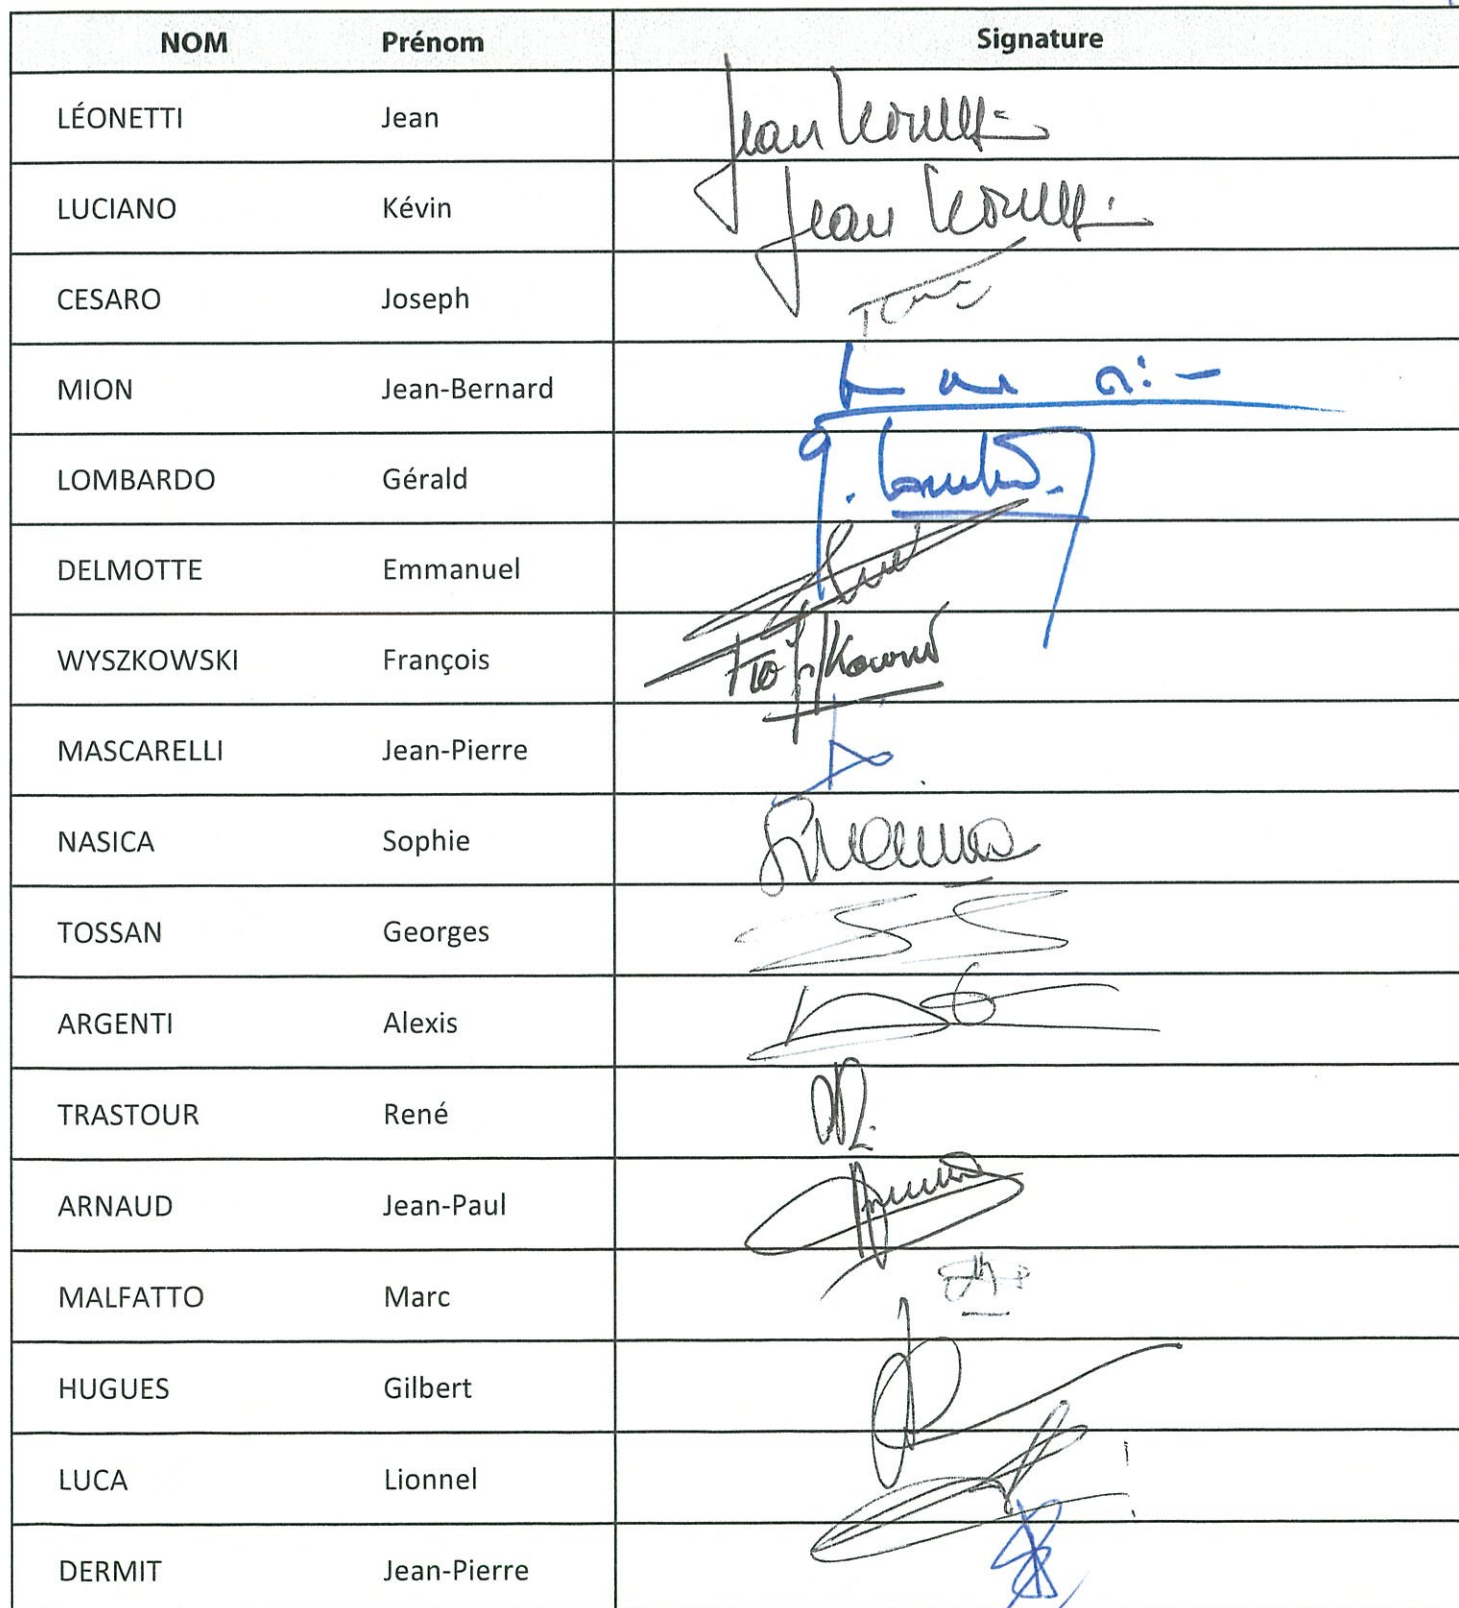 NOM Prénom Signature
LÉONETTI Jean Jean Leonetti
LUCIANO Kévin Jean Leonetti
CESARO Joseph
MION Jean-Bernard
LOMBARDO Gérald G.
DELMOTTE Emmanuel
WYSZKOWSKI François
MASCARELLI Jean-Pierre
NASICA Sophie
TOSSAN Georges
ARGENTI Alexis
TRASTOUR René
ARNAUD Jean-Paul
MALFATTO Marc
HUGUES Gilbert
LUCA Lionnel
DERMIT Jean-Pierre